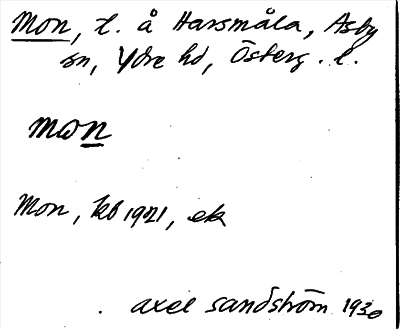 Mon, t. å Harsmåla, Asby
sn, Ydre hd, Österg. l.
mon
Mon, kb 1921, ek
axel sandström 1930